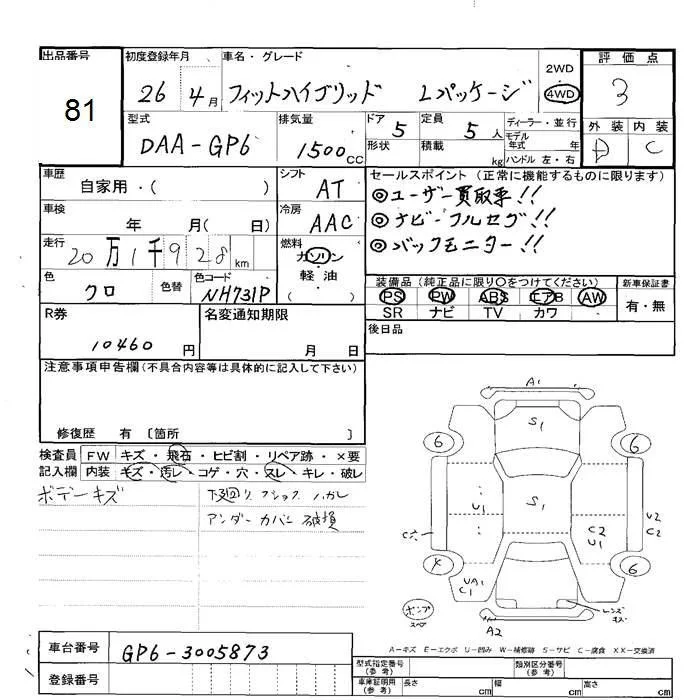 出品番号 初度登録年月 車名・グレード 評価点
81 26 4月 フィットハイブリッド Lパッケージ 2WD 4WD 3
型式 排気量 ドア 5 定員 5人 ディーラー・並行 外装 内装
DAA-GP6 1500CC 形状 積載 kg モデル年式 年 ハンドル 左・右 D C
車歴 シフト セールスポイント (正常に機能するものに限ります)
自家用・( ) AT ◎ユーザー買取車!!
車検 年 月( 日) 冷房 AAC ◎ナビ・フルセグ!!
走行 20万1千928km 燃料 ガソリン ◎バックモニター!!
軽・油
( )
色 クロ 色替 色コード NH731P
装備品(純正品に限り○をつけてください) 新車保証書
PS PW ABS エアB AW 有・無
SR ナビ TV カワ
R券 名変通知期限 後日品
10460円 月 日
注意事項申告欄(不具合内容等は具体的に記入して下さい)
修復歴 有 〔箇所 〕
検査員 FW キズ・飛石・ヒビ割・リペア跡・×要
記入欄 内装 キズ・汚レ・コゲ・穴・スレ・キレ・破レ
ボデーキズ 下廻り フショク ハガレ
アンダーカバー 破損
A1
S1
6 6
S1
U1
C2
U1
U2
C2
6
UA1
C1
ポンプ
スペ
レンズ
キズ
A2
A-キズ E-エクボ U-凹み W-補修跡 S-サビ C-腐食 XX-交換済
車台番号 GP6-3005873
登録番号
型式指定番号(参考) 類別区分番号(参考)
車庫証明用(参考) 長さ cm 幅 cm 高さ cm